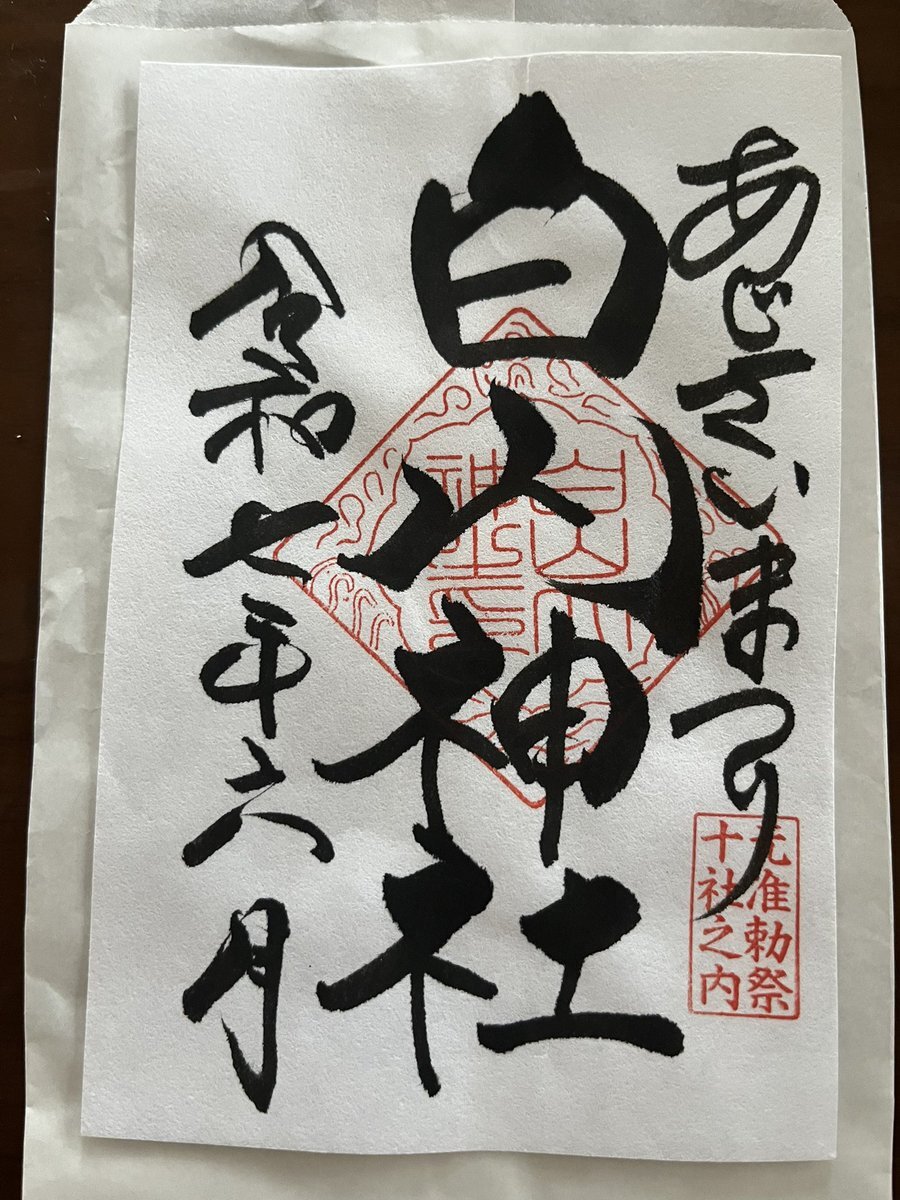 あじさいまつり
元准勅祭
十社之内
白山神社
白山
神社
令和七年六月